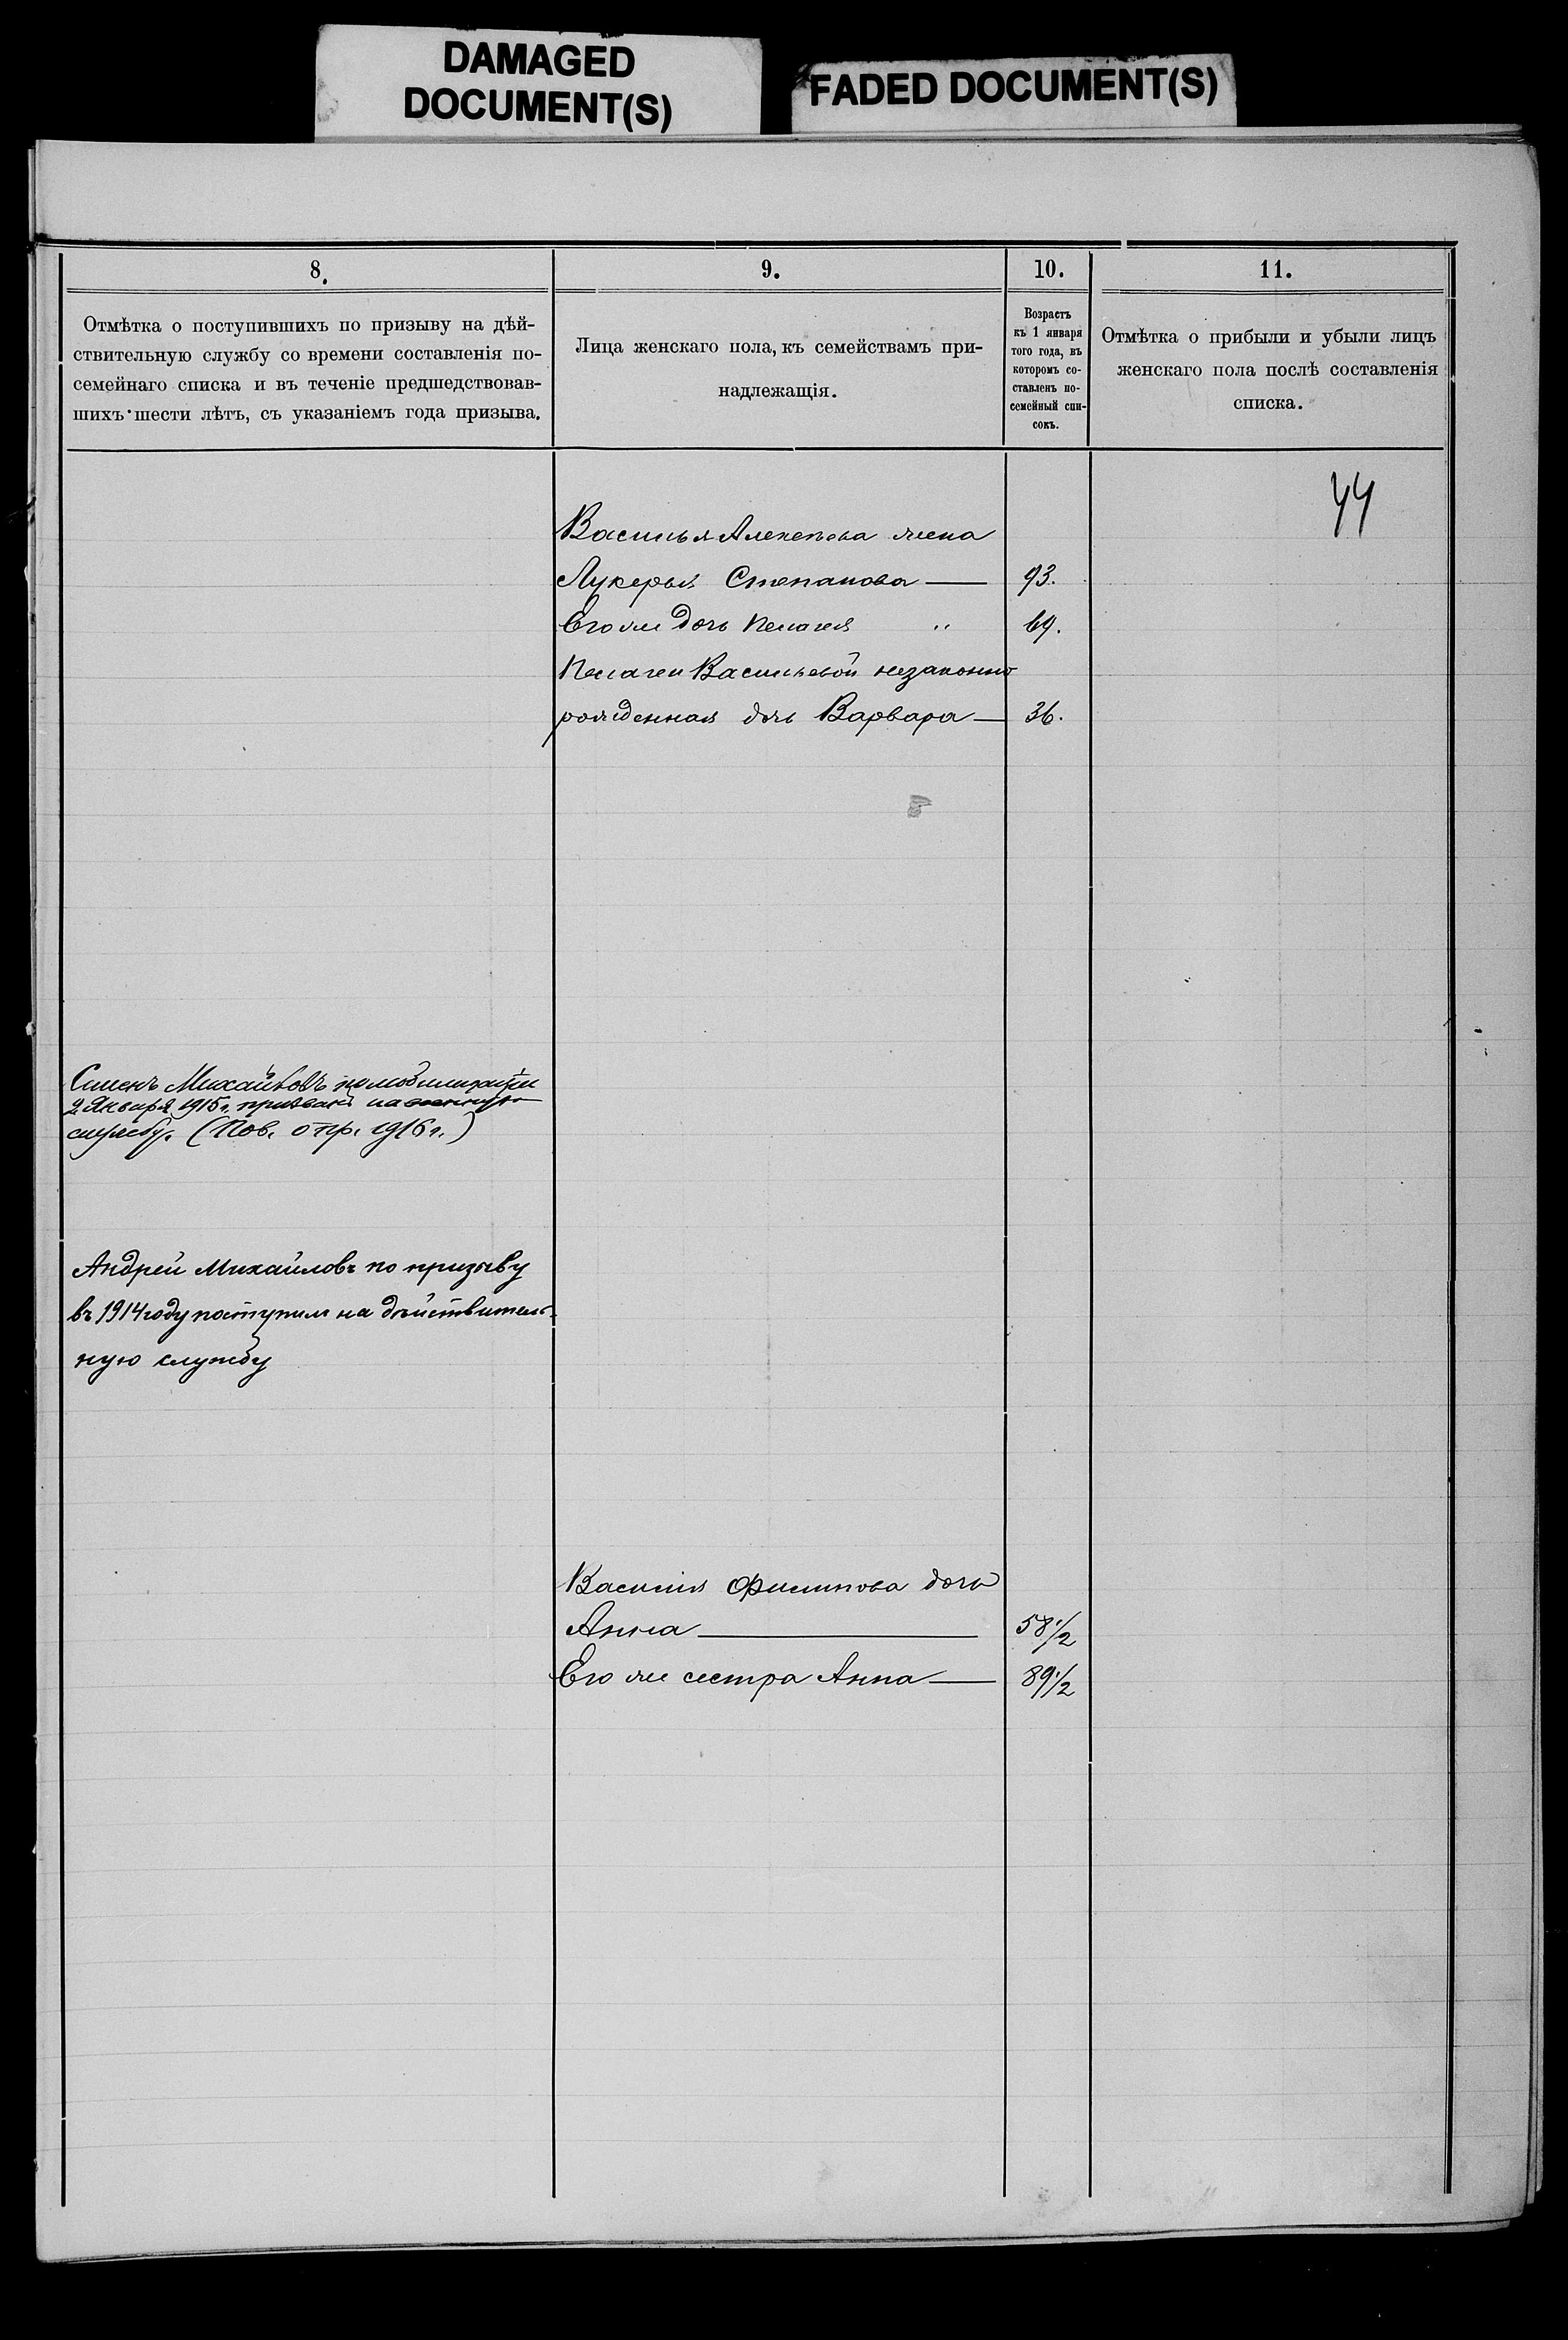 DAMAGED
DOCUMENT(S)
FADED DOCUMENT(S)
8.
Отмѣтка о поступившихъ по призыву на дѣй-
ствительную службу со времени составленія по-
семейнаго списка и въ теченіе предшедствовав-
шихъ шести лѣтъ, съ указаніемъ года призыва.
9.
Лица женскаго пола, къ семействамъ при-
надлежащія.
10.
Возрастъ
къ 1 января
того года, въ
которомъ со-
ставленъ по-
семейный спи-
сокъ.
11.
Отмѣтка о прибыли и убыли лицъ
женскаго пола послѣ составленія
списка.
44
Василья Алексѣева жена
Лукерья Степанова — 93.
Его же дочь Пелагея " 69.
Пелагеи Васильевой незаконно
рожденная дочь Варвара — 36.
Михайловъ по мобилизаціи
2 Января 1915 г. призванъ на военную
службу. (Пов. отр. 1916 г.)
Андрей Михайловъ по призыву
въ 1914 году поступилъ на дѣйствитель-
ную службу
Василія Филипова дочь
Анна — 58 1/2
Его же сестра Анна — 89 1/2